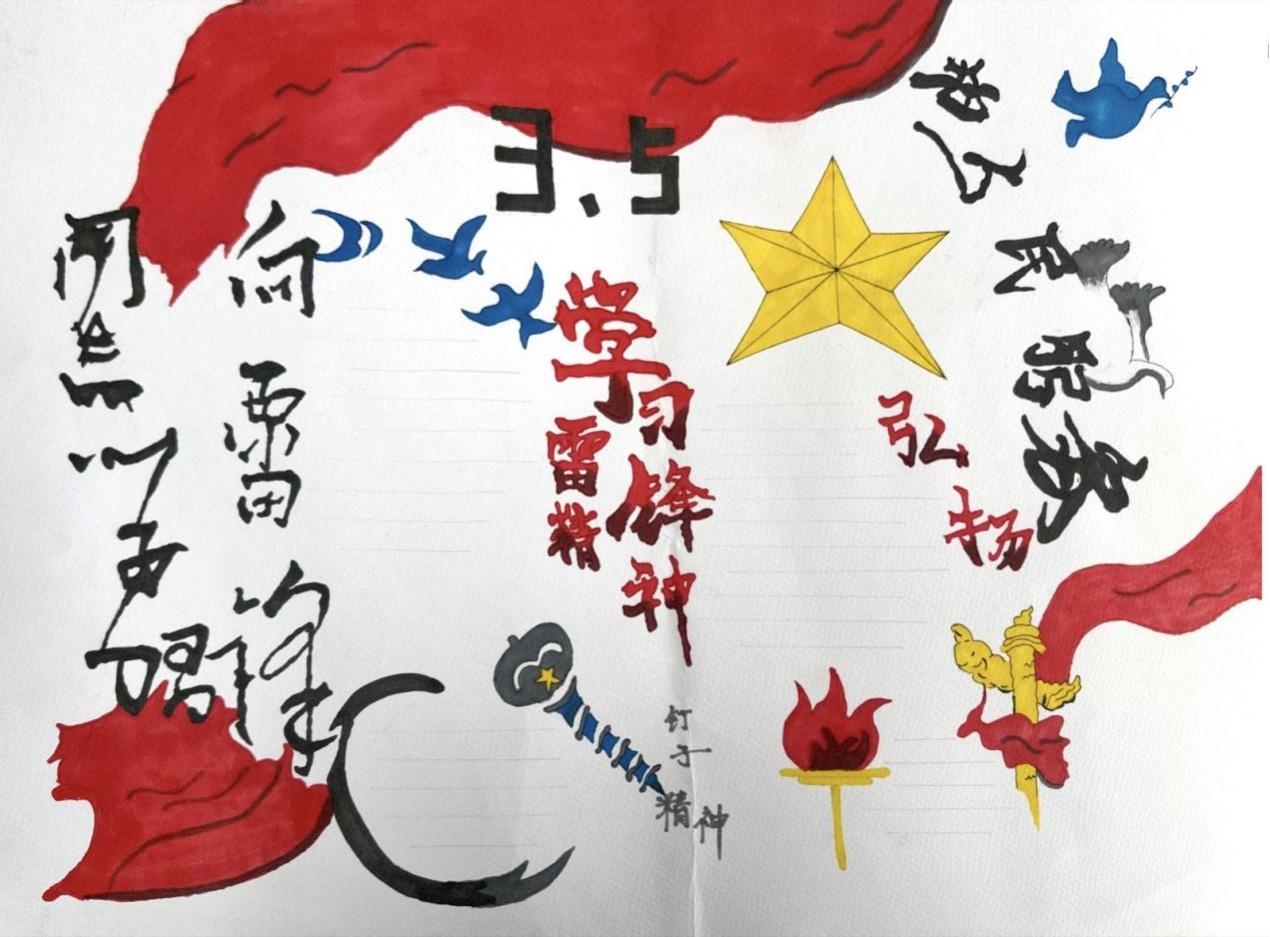 3.5
向雷锋
同志学习
学习
雷锋
精神
弘扬
为人民服务
钉子
精神